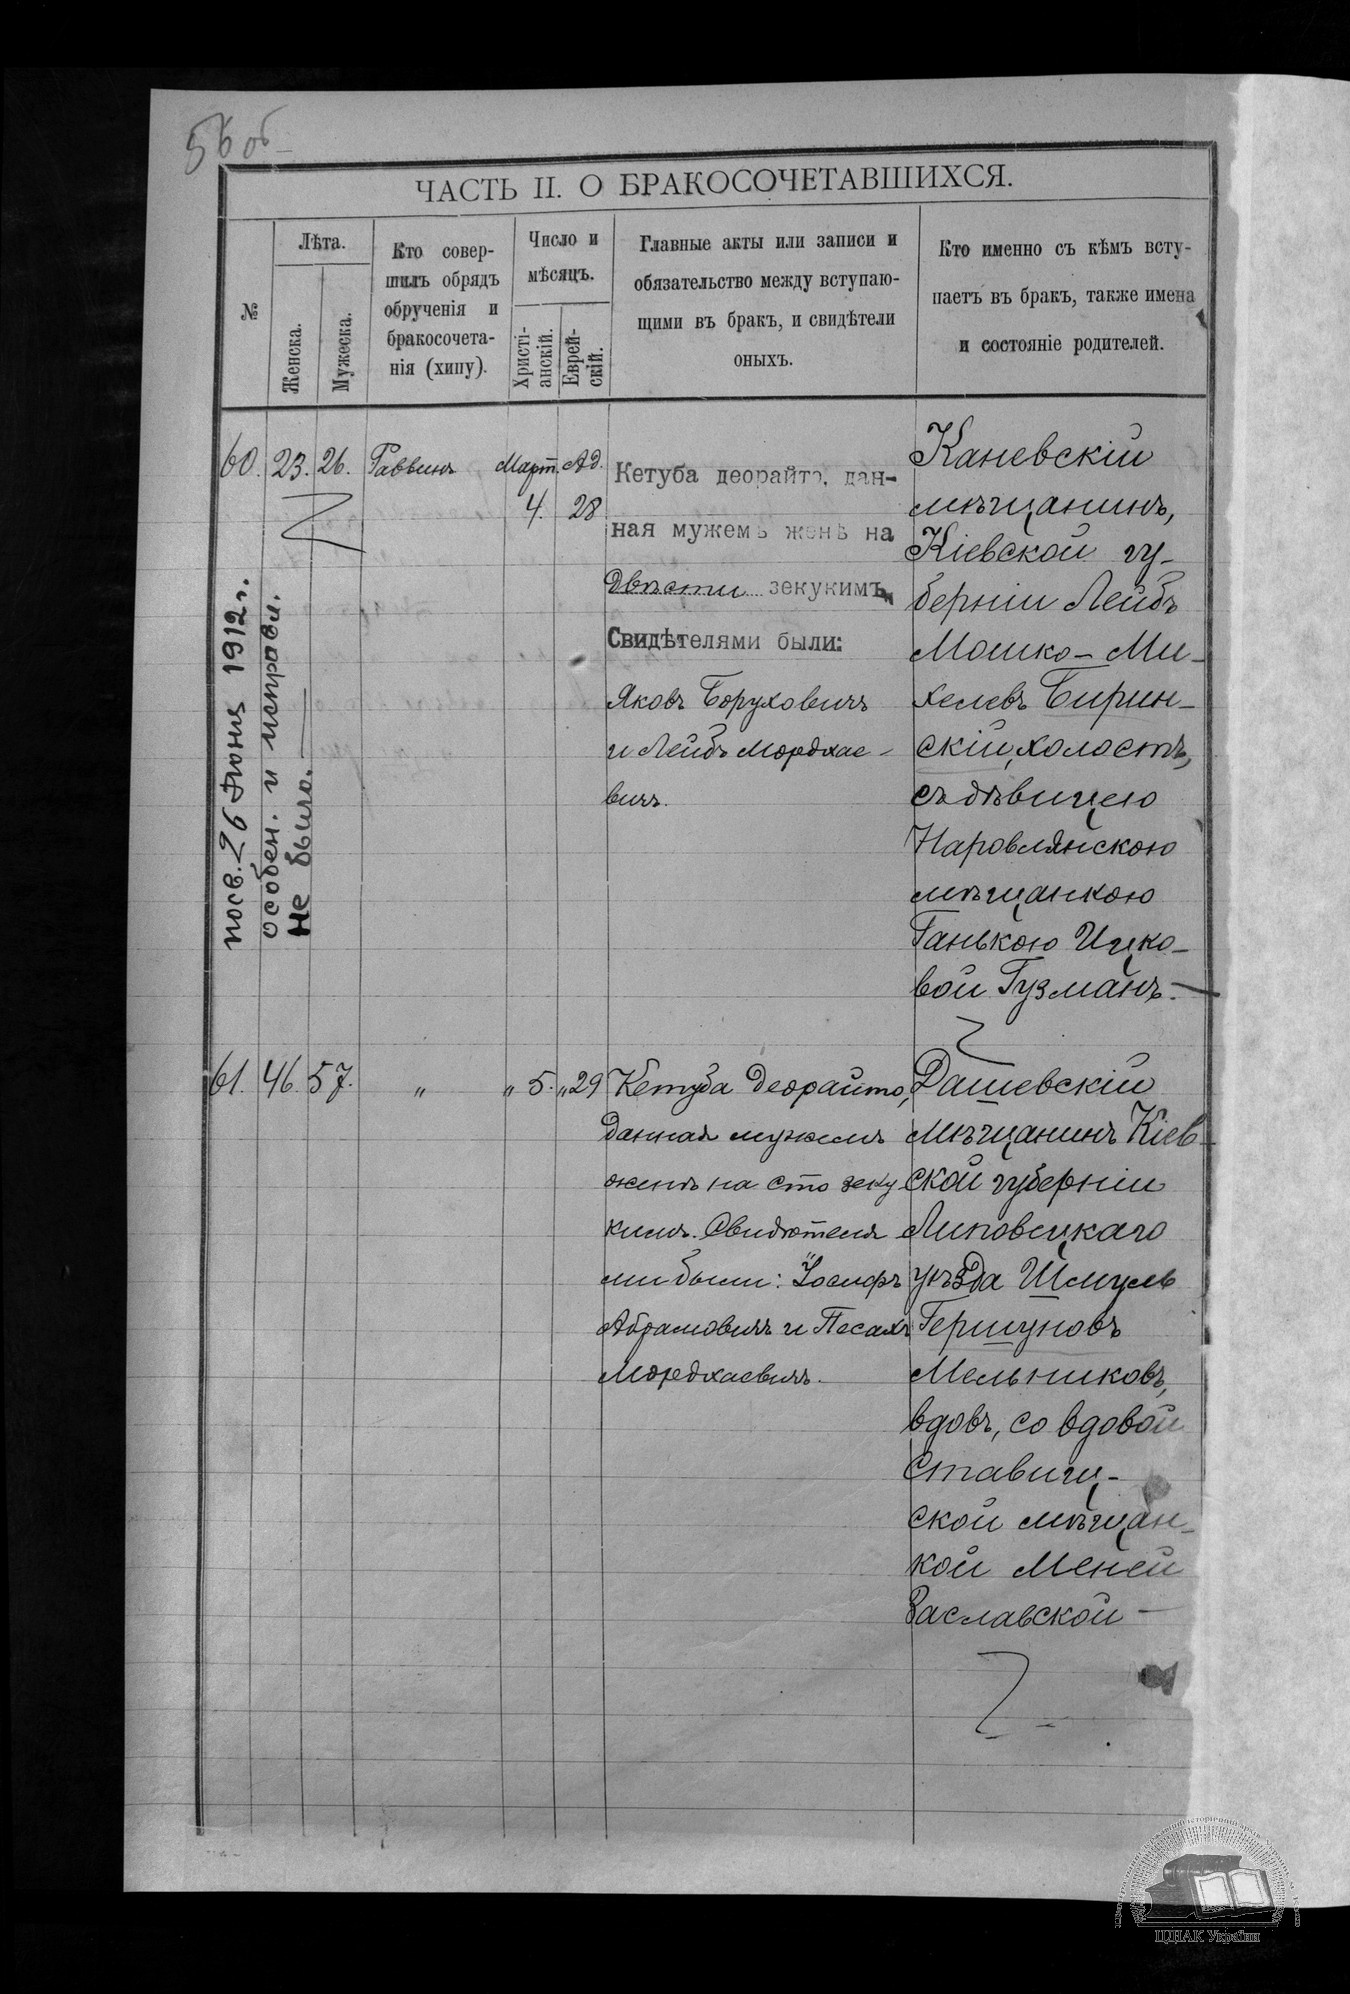 56 об
ЧАСТЬ II. О БРАКОСОЧЕТАВШИХСЯ.
№
Лѣта.
Женска.
Мужеска.
Кто совер-
шилъ обрядъ
обрученія и
бракосочета-
нія (хипу).
Число и
мѣсяцъ.
Христі-
анскій.
Еврей-
скій.
Главные акты или записи и
обязательство между вступаю-
щими въ бракъ, и свидѣтели
оныхъ.
Кто именно съ кѣмъ всту-
паетъ въ бракъ, также имена
и состояніе родителей.
60. 23. 26. Раввинъ Март. Ад.
4. 28
Кетуба деорайта, дан-
ная мужемъ женѣ на
двѣсти зекукимъ
Свидѣтелями были:
Яковъ Боруховичъ
и Лейбъ Мордхае-
вичъ.
Каневскій
мѣщанинъ,
Кіевской гу-
берніи Лейбъ
Мошко-Ми-
хелевъ Бирин-
скій, холостъ,
съ дѣвицею
Наровлянскою
мѣщанкою
Ганькою Ицко-
вой Гузманъ.
посв. 26 Іюния 1912 г.
особен. и исправл.
не было.
61. 46. 57. " " 5. " 29
Кетуба деорайто,
данная мужемъ
женѣ на сто зеку
кимъ. Свидѣтеля
ми были: Іосифъ
Абрамовичъ и Песахъ
Мордхаевичъ.
Дашевскій
мѣщанинъ Кіев-
ской губерніи
Липовецкаго
уѣзда Шмуль
Гершуновъ
Мельниковъ,
вдовъ, со вдовой
Ставищ-
ской мѣщан-
кой Меней
Заславской
ЦДІАК України